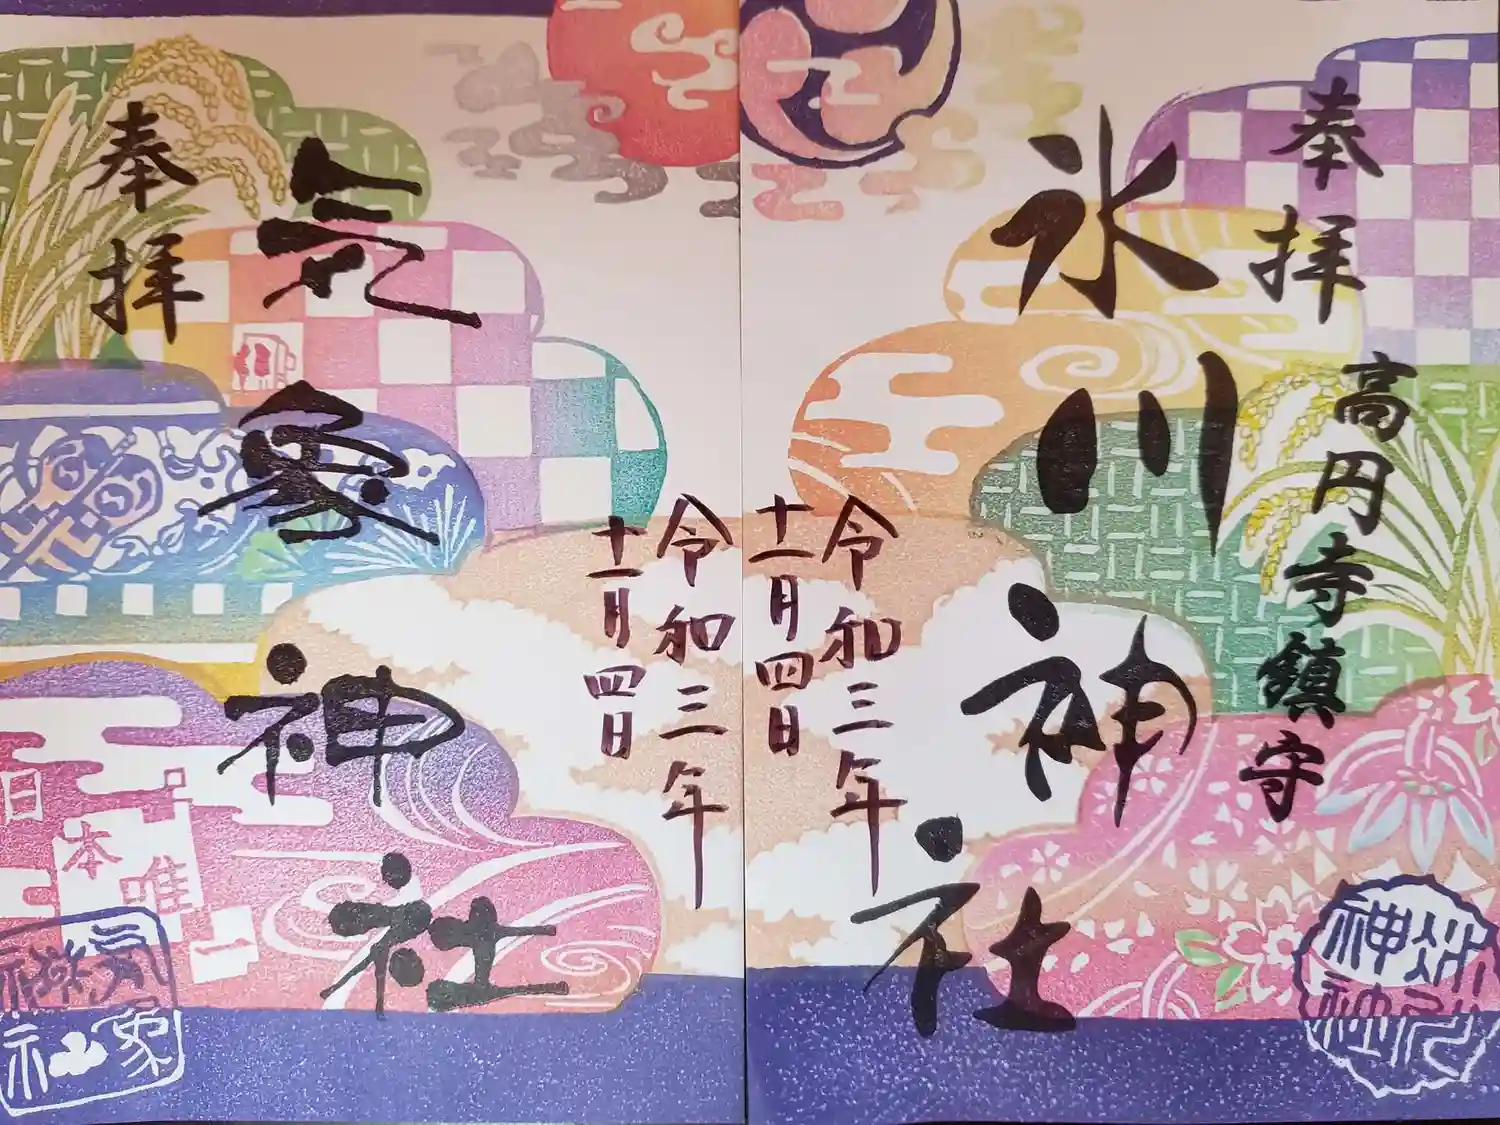 奉拝
高円寺鎮守
氷川神社
令和三年
十一月四日
奉拝
気象神社
令和三年
十一月四日
日本唯一
氷川神社
気象神社